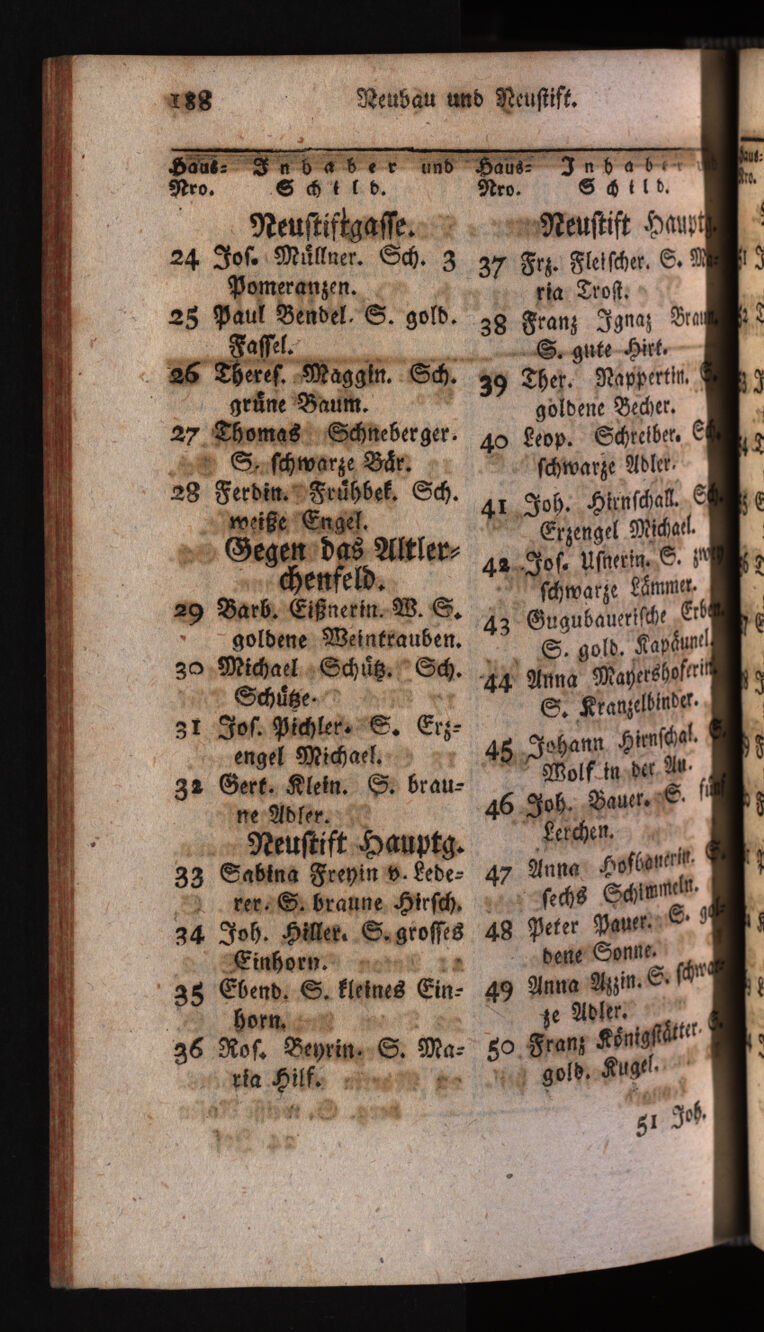 188 Neubau und Neustift.
Haus= Inhaber und
Nro. Schild.
Neustiftgasse.
24 Jos. Müllner. Sch. 3
Pomeranzen.
25 Paul Bendel. S. gold.
Fassel.
26 Theres. Maggin. Sch.
grüne Baum.
27 Thomas Schneberger.
S. schwarze Bär.
28 Ferdin. Frühbek. Sch.
weiße Engel.
Gegen das Altler=
chenfeld.
29 Barb. Eißnerin. W. S.
goldene Weintrauben.
30 Michael Schütz. Sch.
Schütze.
31 Jos. Pichler. S. Erz=
engel Michael.
32 Gert. Klein. S. brau=
ne Adler.
Neustift Hauptg.
33 Sabina Freyin v. Lede=
rer. S. braune Hirsch.
34 Joh. Hiller. S. grosses
Einhorn.
35 Ebend. S. kleines Ein=
horn.
36 Ros. Beyrin. S. Ma=
ria Hilf.
Haus= Inhaber
Nro. Schild.
Neustift Hauptg
37 Frz. Fleischer. S. Ma
ria Trost.
38 Franz Ignaz Braun
S. gute Hirt.
39 Ther. Nappertin. S.
goldene Becher.
40 Leop. Schreiber. Sch
schwarze Adler.
41 Joh. Hirnschall. Sch.
Erzengel Michael.
42 Jos. Usnerin. S. zwey
schwarze Lämmer.
43 Gugubauerische Erben
S. gold. Kapäunel
44 Anna Mayershoferin
S. Kranzelbinder.
45 Johann Hirnschal. S.
Wolf in der Au.
46 Joh. Bauer. S. fünf
Lerchen.
47 Anna Hofbauerin. S.
sechs Schimmeln.
48 Peter Pauer. S. gol
dene Sonne.
49 Anna Azzin. S. schwar
ze Adler.
50 Franz Königstätter. S.
gold. Kugel.
51 Joh.